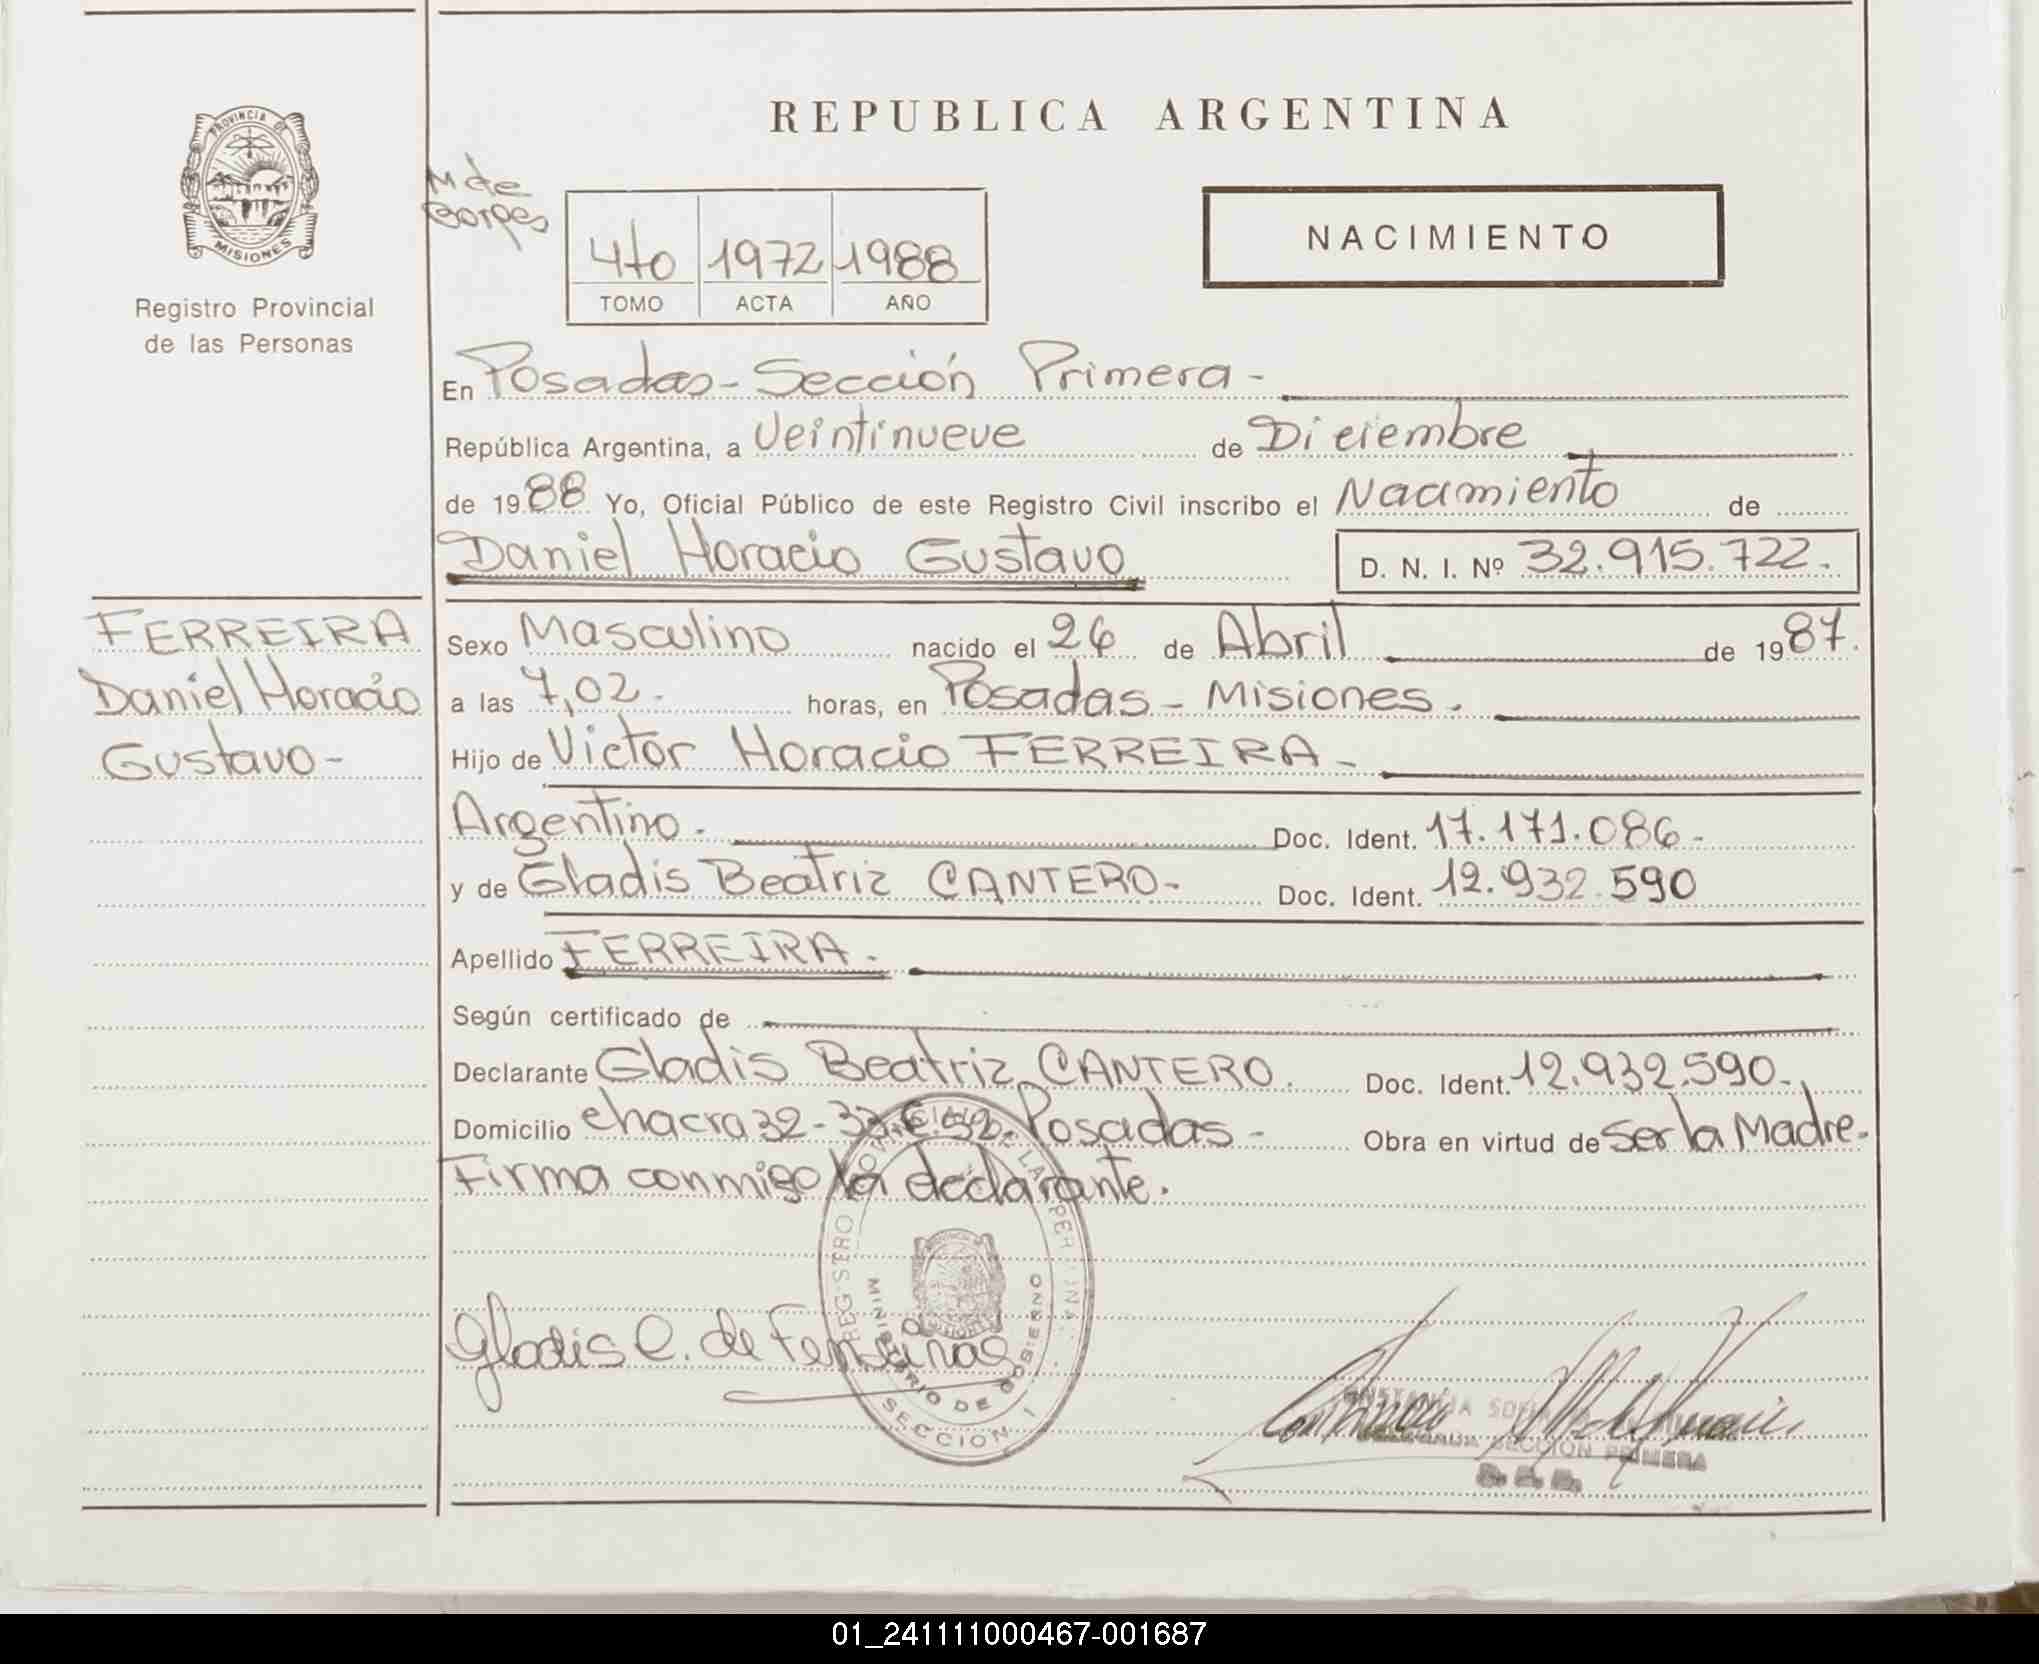 REPUBLICA ARGENTINA
PROVINCIA DE
MISIONES
Registro Provincial
de las Personas
M de
Borges
4to 1972 1988
TOMO ACTA AÑO
NACIMIENTO
En Posadas - Sección Primera -
República Argentina, a Veintinueve de Diciembre
de 1988 Yo, Oficial Público de este Registro Civil inscribo el Nacimiento de
Daniel Horacio Gustavo D. N. I. Nº 32.915.722.
FERREIRA
Daniel Horacio
Gustavo -
Sexo Masculino nacido el 26 de Abril de 1987.
a las 7,02. horas, en Posadas - Misiones.
Hijo de Victor Horacio FERREIRA -
Argentino. Doc. Ident. 17.171.086 -
y de Gladis Beatriz CANTERO - Doc. Ident. 12.932.590
Apellido FERREIRA.
Según certificado de
Declarante Gladis Beatriz CANTERO. Doc. Ident. 12.932.590.
Domicilio chacra 32-33, C. 52. Posadas - Obra en virtud de ser la Madre.
Firma conmigo la declarante.
Gladis C. de
REGISTRO PROVINCIAL DE LAS PERSONAS
MINISTERIO DE GOBIERNO
SECCION I
SECCION PRIMERA
01_241111000467-001687